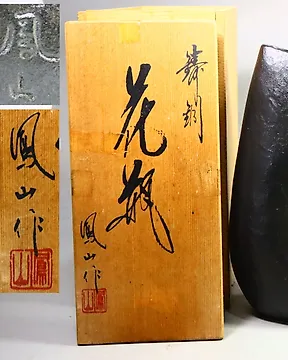 鳳山
鳳山作
鋳銅
花瓶
鳳山作